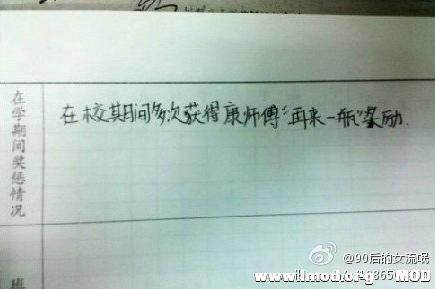 在校其期间多次获得康师傅“再来一瓶”奖励.
在学期间奖惩情况
班
@90后的女流氓
www.lmod.org MOD